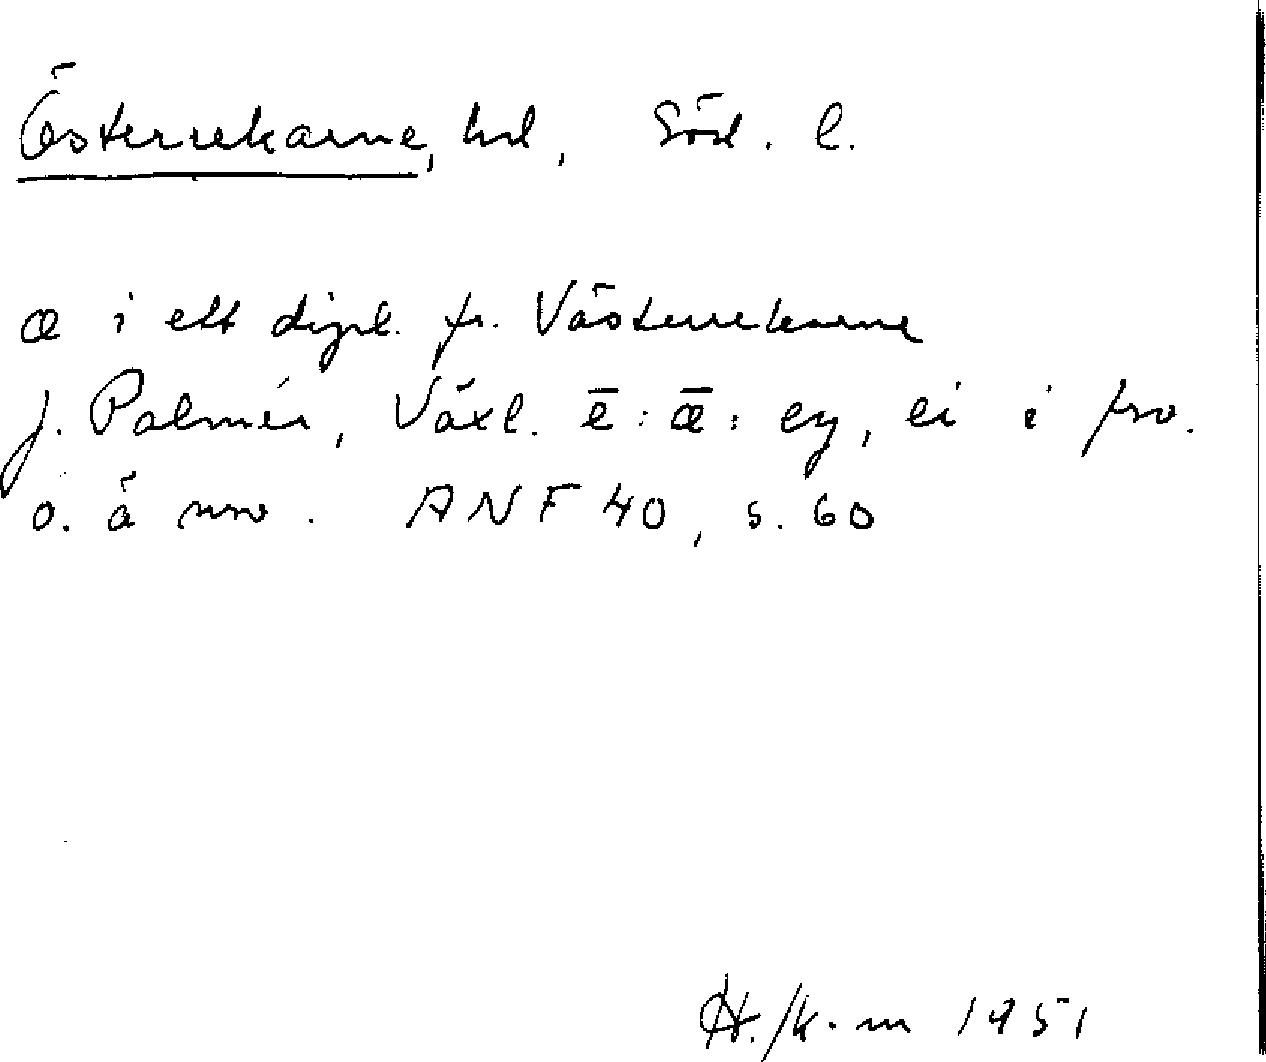 Österrekarne, hd, Söd. l.
æ i ett dipl. fr. Västerrekarne
J. Palmér, Växl. ē : æ : ey, ei i fsv.
o. ä nsv. ANF 40, s. 60
H./k-m 1951